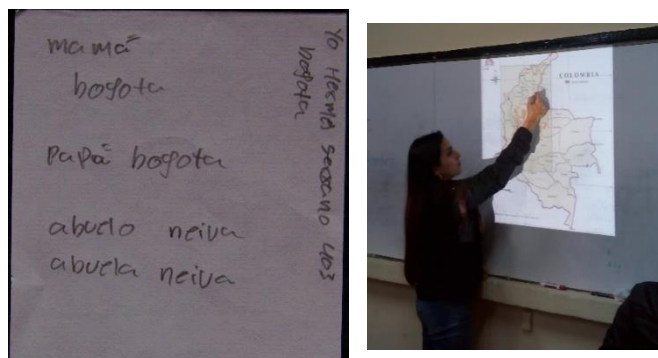 mamá
bogota
papá bogota
abuelo neiva
abuela neiva
Yo Hermes serrano 403
bogota
COLOMBIA